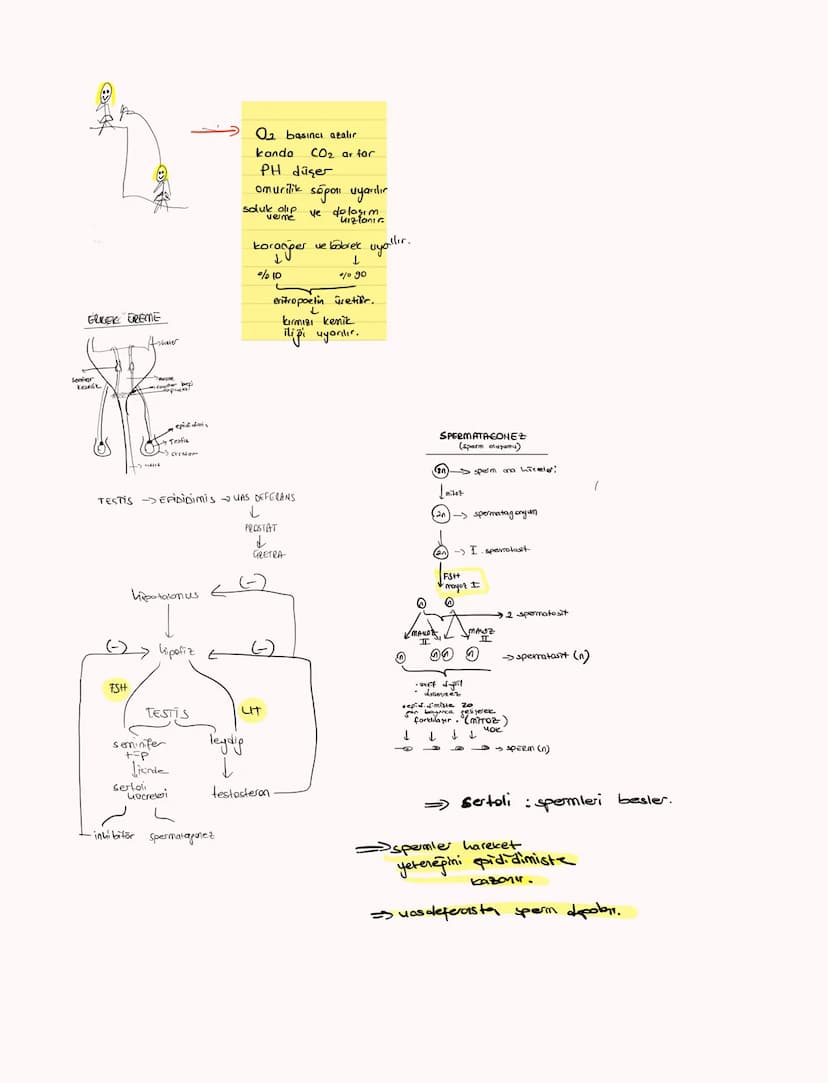 O2 basıncı azalır
kanda CO2 artar
PH düşer
omurilik soğanı uyarılır
soluk alıp verme ve dolaşım hızlanır.
karaciğer ve böbrek uyarılır.
%10 %90
eritropoetin üretilir.
kırmızı kemik
iliği uyarılır.
ERKEK ÜREME
epididimis
Testis
TESTİS → EPİDİDİMİS → VAS DEFERANS
PROSTAT
ÜRETRA
(-)
hipotalamus
(-) hipofiz (-)
FSH
LH
TESTİS
seminifer
tüp
içinde
leydig
sertoli
hücreleri
testosteron
inhibitör spermatagonez
SPERMATAGONEZ
(sperm oluşumu)
2n → sperm ana hücreleri
mitoz
2n → spermatagonyum
2n → I. spermatosit
FSH
mayoz I
n n
→ 2 spermatosit
MAYOZ II MAYOZ II
n n n n → spermatasit (n)
epididimiste 20
gün boyunca gelişerek
farklılaşır. (MİTOZ)
YOK
→ SPERM (n)
⇒ sertoli : spermleri besler.
⇒ spermler hareket
yeteneğini epididimiste
kazanır.
⇒ vasdeferansta sperm depolanır.